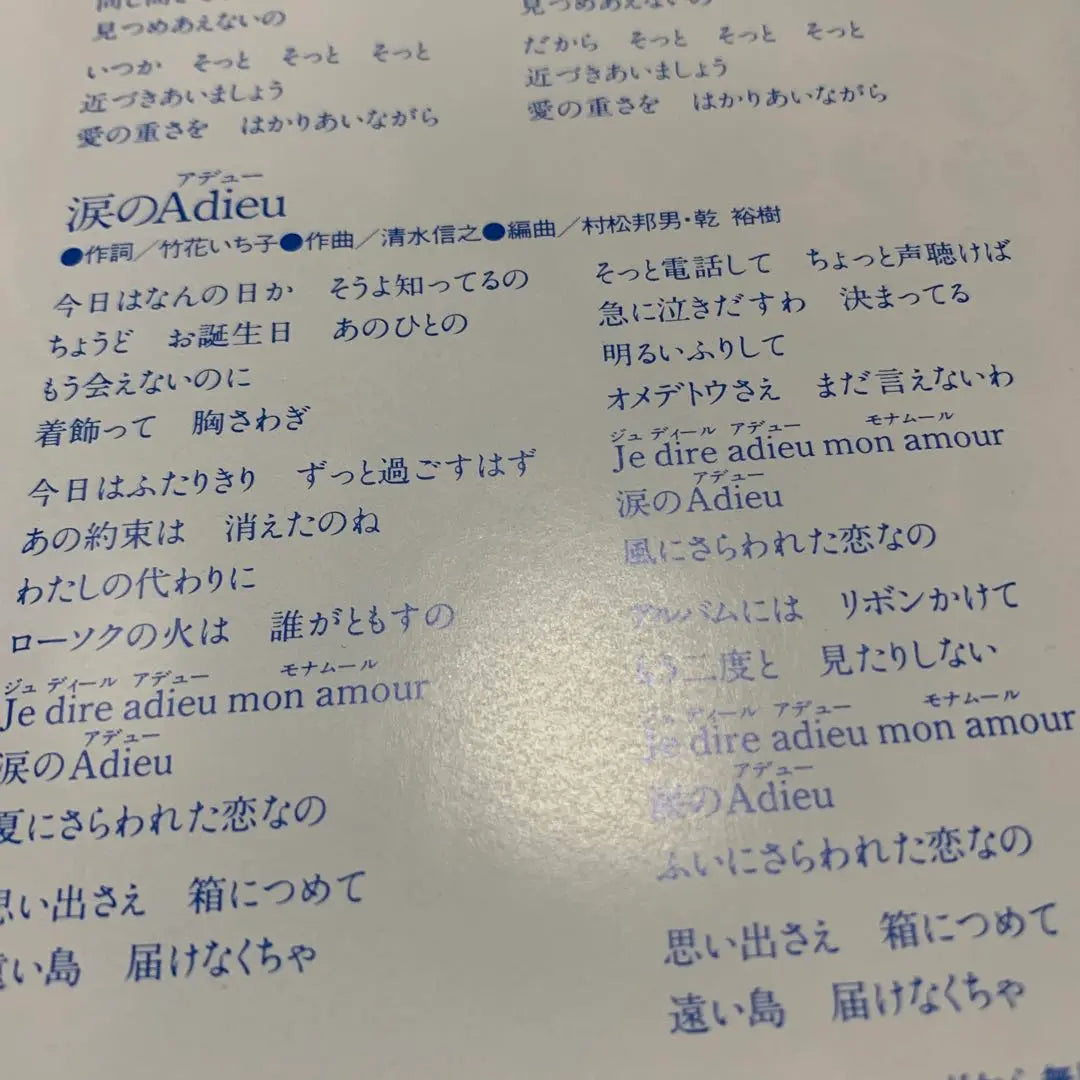 見つめあえないの
いつか　そっと　そっと　そっと
近づきあいましょう
愛の重さを　はかりあいながら
見つめあえないの
だから　そっと　そっと　そっと
近づきあいましょう
愛の重さを　はかりあいながら
アデュー
涙のAdieu
●作詞／竹花いち子●作曲／清水信之●編曲／村松邦男・乾 裕樹
今日はなんの日か　そうよ知ってるの
ちょうど　お誕生日　あのひとの
もう会えないのに
着飾って　胸さわぎ
今日はふたりきり　ずっと過ごすはず
あの約束は　消えたのね
わたしの代わりに
ローソクの火は　誰がともすの
ジュ ディール アデュー　モナムール
Je dire adieu mon amour
アデュー
涙のAdieu
夏にさらわれた恋なの
思い出さえ　箱につめて
遠い島　届けなくちゃ
そっと電話して　ちょっと声聴けば
急に泣きだすわ　決まってる
明るいふりして
オメデトウさえ　まだ言えないわ
ジュ ディール アデュー　モナムール
Je dire adieu mon amour
アデュー
涙のAdieu
風にさらわれた恋なの
アルバムには　リボンかけて
もう二度と　見たりしない
ジュ ディール アデュー　モナムール
Je dire adieu mon amour
アデュー
涙のAdieu
ふいにさらわれた恋なの
思い出さえ　箱につめて
遠い島　届けなくちゃ